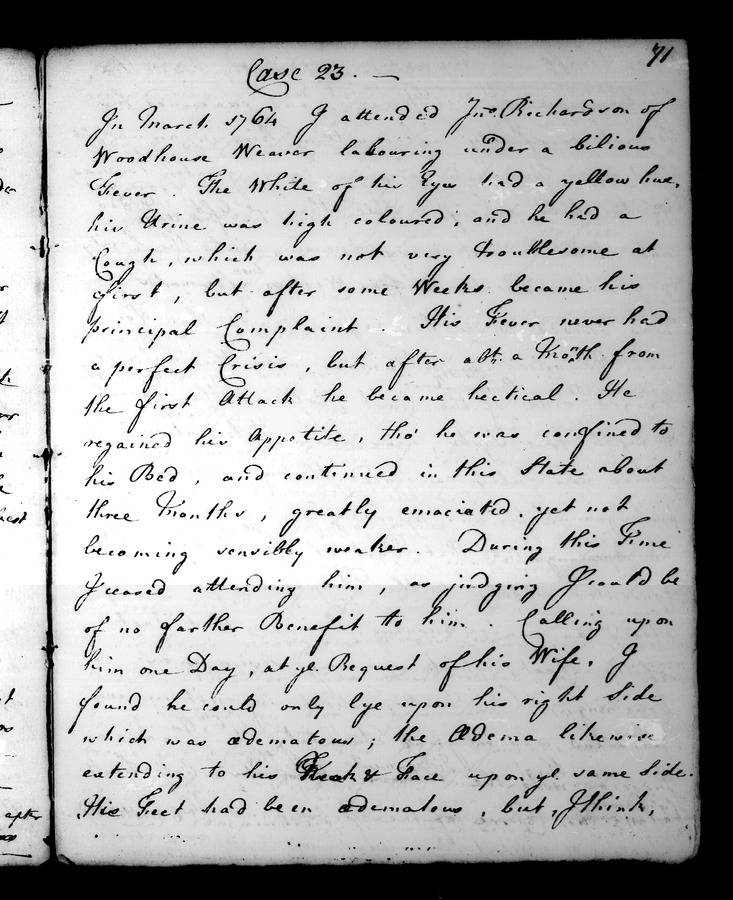 71
Case 23. —
In March 1764 I attended Jno. Richardson of
Woodhouse Weaver labouring under a bilious
Fever. The White of his Eyes had a yellow hue,
his Urine was high coloured; and he had a
Cough, which was not very troublesome at
first, but after some Weeks became his
principal Complaint. His Fever never had
a perfect Crisis, but after abt. a Month from
the first Attack he became hectical. He
regained his Appetite, tho' he was confined to
his Bed, and continued in this State about
three Months, greatly emaciated, yet not
becoming sensibly weaker. During this Time
I ceased attending him, as judging I could be
of no farther Benefit to him. Calling upon
him one Day, at ye. Request of his Wife, I
found he could only lye upon his right Side
which was œdematous; the Œdema likewise
extending to his & Face upon ye. same Side.
His Feet had been œdematous, but, I think,
after